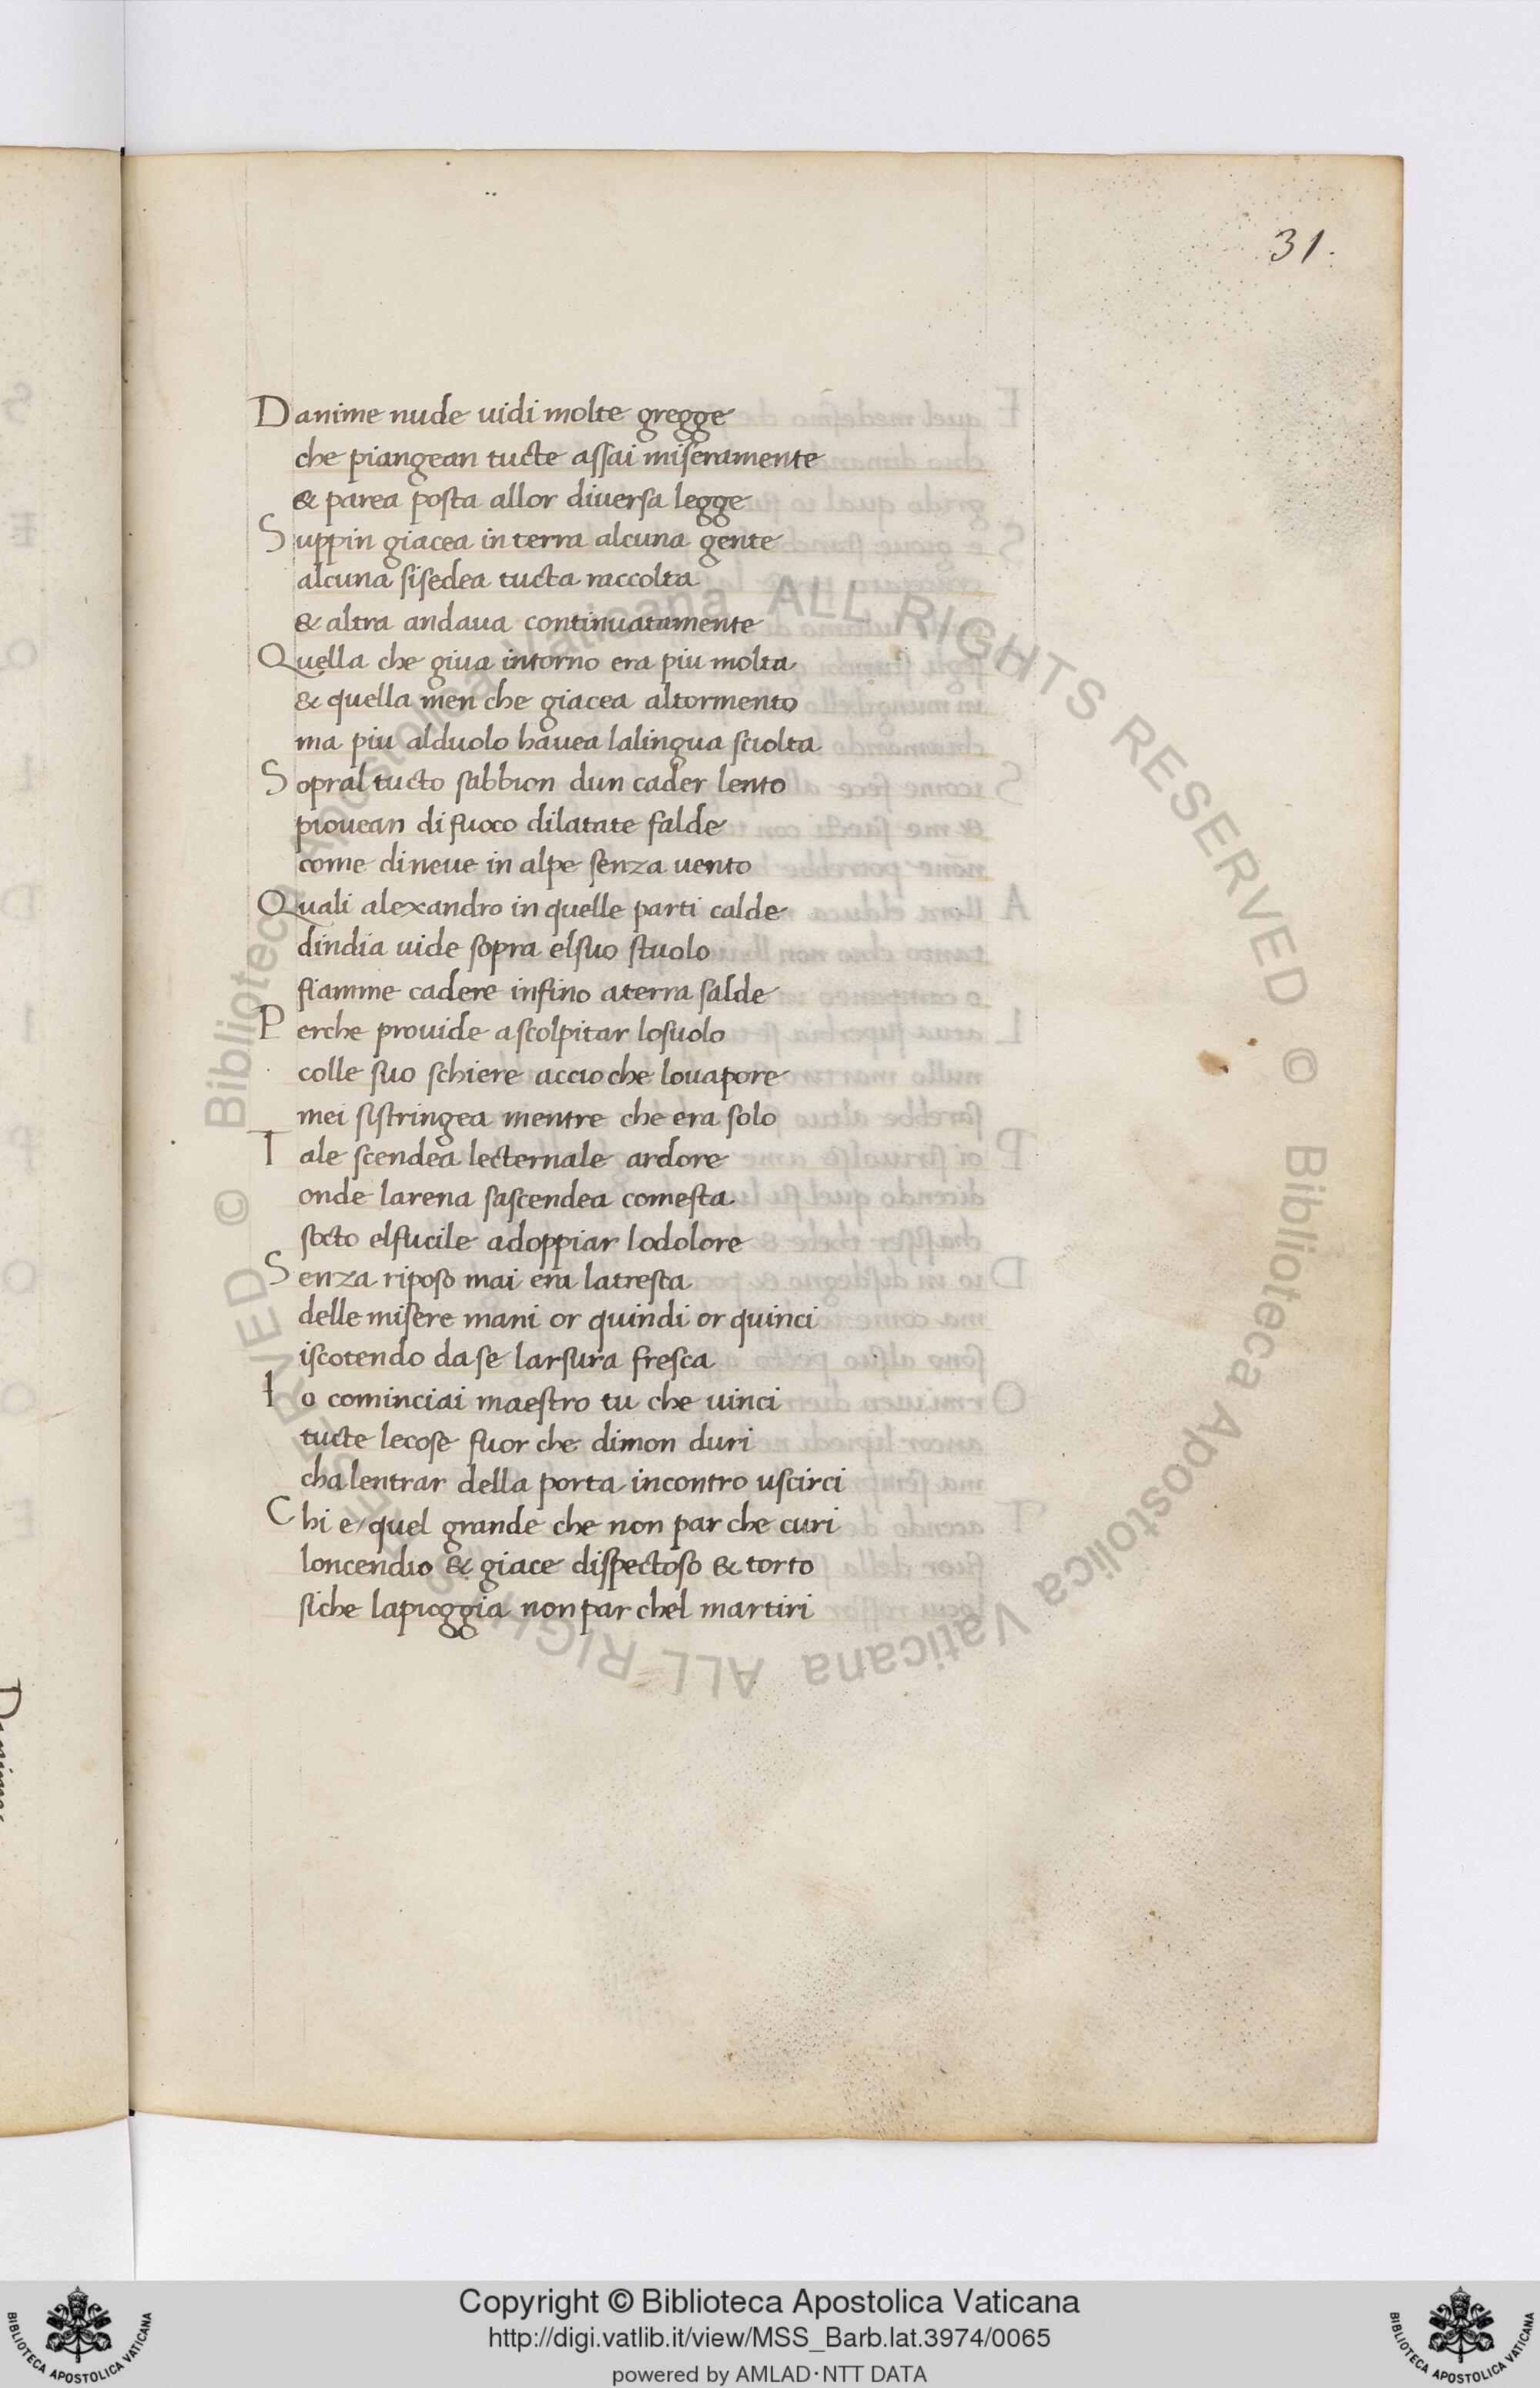 31.
Danime nude uidi molte gregge
che piangean tucte assai miseramente
& parea posta allor diuersa legge
Suppin giacea in terra alcuna gente
alcuna sisedea tucta raccolta
& altra andaua continuatamente
Quella che giua intorno era piu molta
& quella men che giacea altormento
ma piu alduolo hauea lalingua sciolta
Sopral tucto sabbion dun cader lento
piouean di fuoco dilatate falde
come dineue in alpe senza uento
Quali alexandro in quelle parti calde
dindia uide sopra elsuo stuolo
fiamme cadere infino aterra salde
Perche prouide a scolpitar losuolo
colle suo schiere accioche louapore
mei sistringea mentre che era solo
Tale scendea lecternale ardore
onde larena sascendea comesca
socto elfucile adoppiar lodolore
Senza riposo mai era latresca
delle misere mani or quindi or quinci
iscotendo dase larsura fresca
Io cominciai maestro tu che uinci
tucte lecose fuor che dimon duri
chalentrar della porta incontro uscirci
Chi e quel grande che non par che curi
loncendio & giace dispectoso & torto
siche lapioggia non par chel martiri
Copyright © Biblioteca Apostolica Vaticana
http://digi.vatlib.it/view/MSS_Barb.lat.3974/0065
powered by AMLAD·NTT DATA
BIBLIOTECA APOSTOLICA VATICANA
BIBLIOTECA APOSTOLICA VATICANA
© Biblioteca Apostolica Vaticana ALL RIGHTS RESERVED © Biblioteca Apostolica Vaticana ALL RIGHTS RESERVED